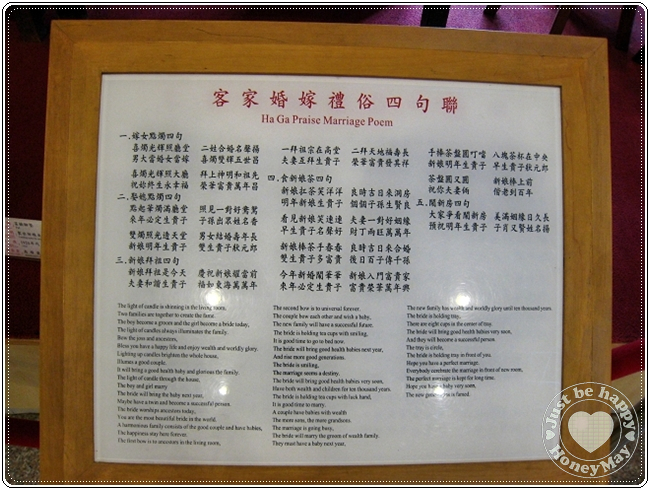 客家婚嫁禮俗四句聯
Ha Ga Praise Marriage Poem
一.嫁女點燭四句
喜燭光輝照廳堂 二姓合婚名聲揚
男大當婚女當嫁 喜燭雙輝五世昌
喜燭光輝照大廳 拜上神明和祖先
祝妳終生永幸福 榮華富貴萬年昌
二.娶媳點燭四句
點起華燭滿廳堂 照見一對好鴛鴦
來年必定生貴子 子孫出眾姓名香
雙燭照光透天堂 男女結婚壽年長
新娘明年生貴子 雙生貴子狀元郎
三.新娘拜祖四句
新娘拜祖是今天 慶祝新娘耀當前
夫妻和諧生貴子 福如東海萬萬年
一拜祖宗在高堂 二拜天地福壽長
夫妻互拜生貴子 榮華富貴發其祥
四.食新娘茶四句
新娘扛茶笑洋洋 良時吉日來洞房
明年新娘生貴子 個個子孫生賢良
看見新娘笑連連 夫妻一對好姻緣
早生貴子名聲好 財丁兩旺萬萬年
新娘捧茶手春春 良時吉日來合婚
雙生貴子多富貴 後日百子傳千孫
今年新婚鬧華華 新娘入門富貴家
來年必定生貴子 富貴榮華萬年興
手棒茶盤圓叮噹 八塊茶杯在中央
新娘明年生貴子 早生貴子狀元郎
茶盤圓又圓 新娘棒上前
祝你夫妻倆 偕老到百年
五.鬧新房四句
大家爭看鬧新房 美滿姻緣日久長
預祝明年生貴子 子肖又賢姓名揚
The light of candle is shinning in the living room,
Two families are together to create the fame.
The boy become a groom and the girl become a bride today,
The light of candles always illuminates the family.
Bow the joss and ancestors,
Bless you have a happy life and enjoy wealth and worldly glory.
Lighting up candles brighten the whole house,
Illumes a good couple.
It will bring a good health baby and glorious the family.
The light of candle through the house,
The boy and girl marry
The bride will bring the baby next year,
Maybe have a twin and become a successful person.
The bride worships ancestors today,
You are the most beautiful bride in the world.
A harmonious family consists of the good couple and have babies,
The happiness stay here forever.
The first bow is to ancestors in the living room,
The second bow is to universal forever.
The couple bow each other and wish a baby,
The new family will have a successful future.
The bride is holding tea cups with smiling,
It is good time to go to bed now.
The bride will bring good health babies next year,
And rise more good generations.
The bride is smiling,
The marriage seems a destiny.
The bride will bring good health babies very soon,
Have both wealth and children for ten thousand years.
The bride is holding tea cups with luck hand.
It is good time to marry,
A couple have babies with wealth
The more sons, the more grandsons.
The marriage is going busy,
The bride will marry the groom of wealth family.
They must have a baby next year,
The new family has wealth and worldly glory until ten thousand years.
The bride is holding tray,
There are eight cups in the center of tray.
The bride will bring good health babies very soon,
And they will become a successful person.
The tray is circle,
The bride is holding tray in front of you.
Hope you have a perfect marriage.
Everybody celebrate the marriage in front of new room,
The perfect marriage is kept for long time.
Hope you have a baby very soon,
The new generation is famed.
Just be happy
HoneyMay